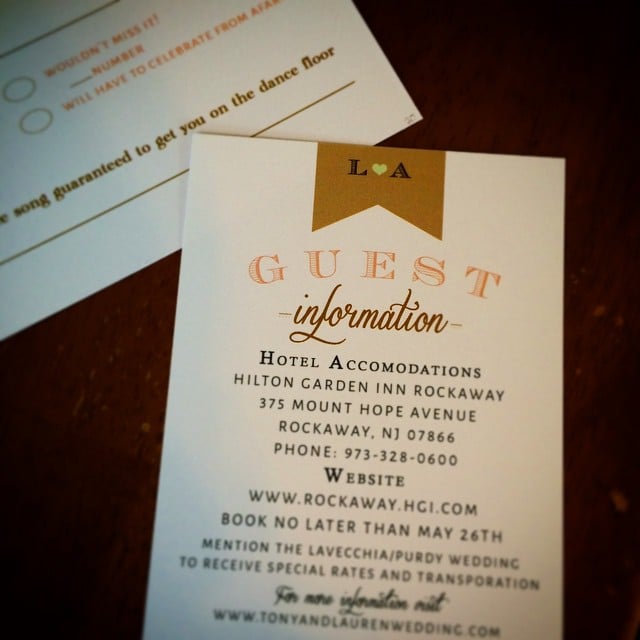 WOULDN'T MISS IT!
NUMBER
WILL HAVE TO CELEBRATE FROM AFAR
song guaranteed to get you on the dance floor
L A
GUEST
-information-
HOTEL ACCOMODATIONS
HILTON GARDEN INN ROCKAWAY
375 MOUNT HOPE AVENUE
ROCKAWAY, NJ 07866
PHONE: 973-328-0600
WEBSITE
WWW.ROCKAWAY.HGI.COM
BOOK NO LATER THAN MAY 26TH
MENTION THE LAVECCHIA/PURDY WEDDING
TO RECEIVE SPECIAL RATES AND TRANSPORATION
For more information visit
WWW.TONYANDLAURENWEDDING.COM